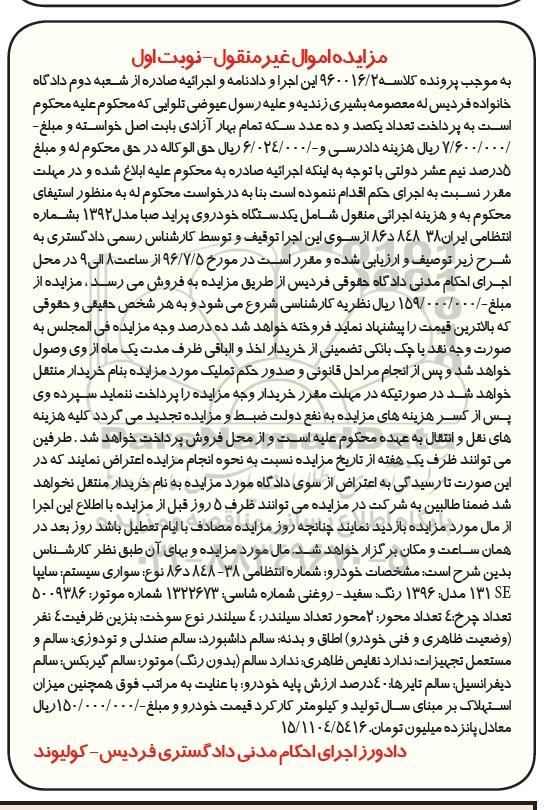 مزایده اموال غیر منقول - نوبت اول
به موجب پرونده کلاسه ۹۶۰۰۱۶/۲ این اجرا و دادنامه و اجرائیه صادره از شعبه دوم دادگاه
خانواده فردیس له معصومه بشیری زندیه و علیه رسول عیوضی تلوایی که محکوم علیه محکوم
است به پرداخت تعداد یکصد و ده عدد سکه تمام بهار آزادی بابت اصل خواسته و مبلغ-
/۷/۶۰۰/۰۰۰ ریال هزینه دادرسی و-/۶/۰۲۴/۰۰۰ ریال حق الوکاله در حق محکوم له و مبلغ
۵درصد نیم عشر دولتی با توجه به اینکه اجرائیه صادره به محکوم علیه ابلاغ شده و در مهلت
مقرر نسبت به اجرای حکم اقدام ننموده است بنا به درخواست محکوم له به منظور استیفای
محکوم به و هزینه اجرائی منقول شامل یکدستگاه خودروی پراید صبا مدل۱۳۹۲ بشماره
انتظامی ایران۳۸ ۸۴۸ د۸۶ ازسوی این اجرا توقیف و توسط کارشناس رسمی دادگستری به
شرح زیر توصیف و ارزیابی شده و مقرر است در مورخ ۹۶/۷/۵ از ساعت۸ الی۹ در محل
اجرای احکام مدنی دادگاه حقوقی فردیس از طریق مزایده به فروش می رسد ، مزایده از
مبلغ-/۱۵۹/۰۰۰/۰۰۰ ریال نظریه کارشناسی شروع می شود و به هر شخص حقیقی و حقوقی
که بالاترین قیمت را پیشنهاد نماید فروخته خواهد شد ده درصد وجه مزایده فی المجلس به
صورت وجه نقد یا چک بانکی تضمینی از خریدار اخذ و الباقی ظرف مدت یک ماه از وی وصول
خواهد شد و پس از انجام مراحل قانونی و صدور حکم تملیک مورد مزایده بنام خریدار منتقل
خواهد شد در صورتیکه در مهلت مقرر خریدار وجه مزایده را پرداخت ننماید سپرده وی
پس از کسر هزینه های مزایده به نفع دولت ضبط و مزایده تجدید می گردد کلیه هزینه
های نقل و انتقال به عهده محکوم علیه است و از محل فروش پرداخت خواهد شد . طرفین
می توانند ظرف یک هفته از تاریخ مزایده نسبت به نحوه انجام مزایده اعتراض نمایند که در
این صورت تا رسیدگی به اعتراض از سوی دادگاه مورد مزایده به نام خریدار منتقل نخواهد
شد ضمنا طالبین به شرکت در مزایده می توانند ظرف ۵ روز قبل از مزایده با اطلاع این اجرا
از مال مورد مزایده بازدید نمایند چنانچه روز مزایده مصادف با ایام تعطیل باشد روز بعد در
همان ساعت و مکان برگزار خواهد شد. مال مورد مزایده و بهای آن طبق نظر کارشناس
بدین شرح است: مشخصات خودرو: شماره انتظامی ۳۸- ۸۴۸ د۸۶ نوع: سواری سیستم: سایپا
۱۳۱ SE مدل: ۱۳۹۶ رنگ: سفید - روغنی شماره شاسی: ۱۳۲۲۶۷۳ شماره موتور: ۵۰۰۹۳۸۶
تعداد چرخ:۴ تعداد محور: ۲محور تعداد سیلندر: ۴ سیلندر نوع سوخت: بنزین ظرفیت۴ نفر
(وضعیت ظاهری و فنی خودرو) اطاق و بدنه: سالم داشبورد: سالم صندلی و تودوزی: سالم و
مستعمل تجهیزات: ندارد نقایص ظاهری: ندارد سالم (بدون رنگ) موتور: سالم گیربکس: سالم
دیفرانسیل: سالم تایرها: ۴۰درصد ارزش پایه خودرو: با عنایت به مراتب فوق همچنین میزان
استهلاک بر مبنای سال تولید و کیلومتر کارکرد قیمت خودرو و مبلغ-/۱۵۰/۰۰۰/۰۰۰ریال
معادل پانزده میلیون تومان. ۱۵/۱۱۰۴/۵۴۱۶
دادورز اجرای احکام مدنی دادگستری فردیس - کولیوند
ParsNamadData